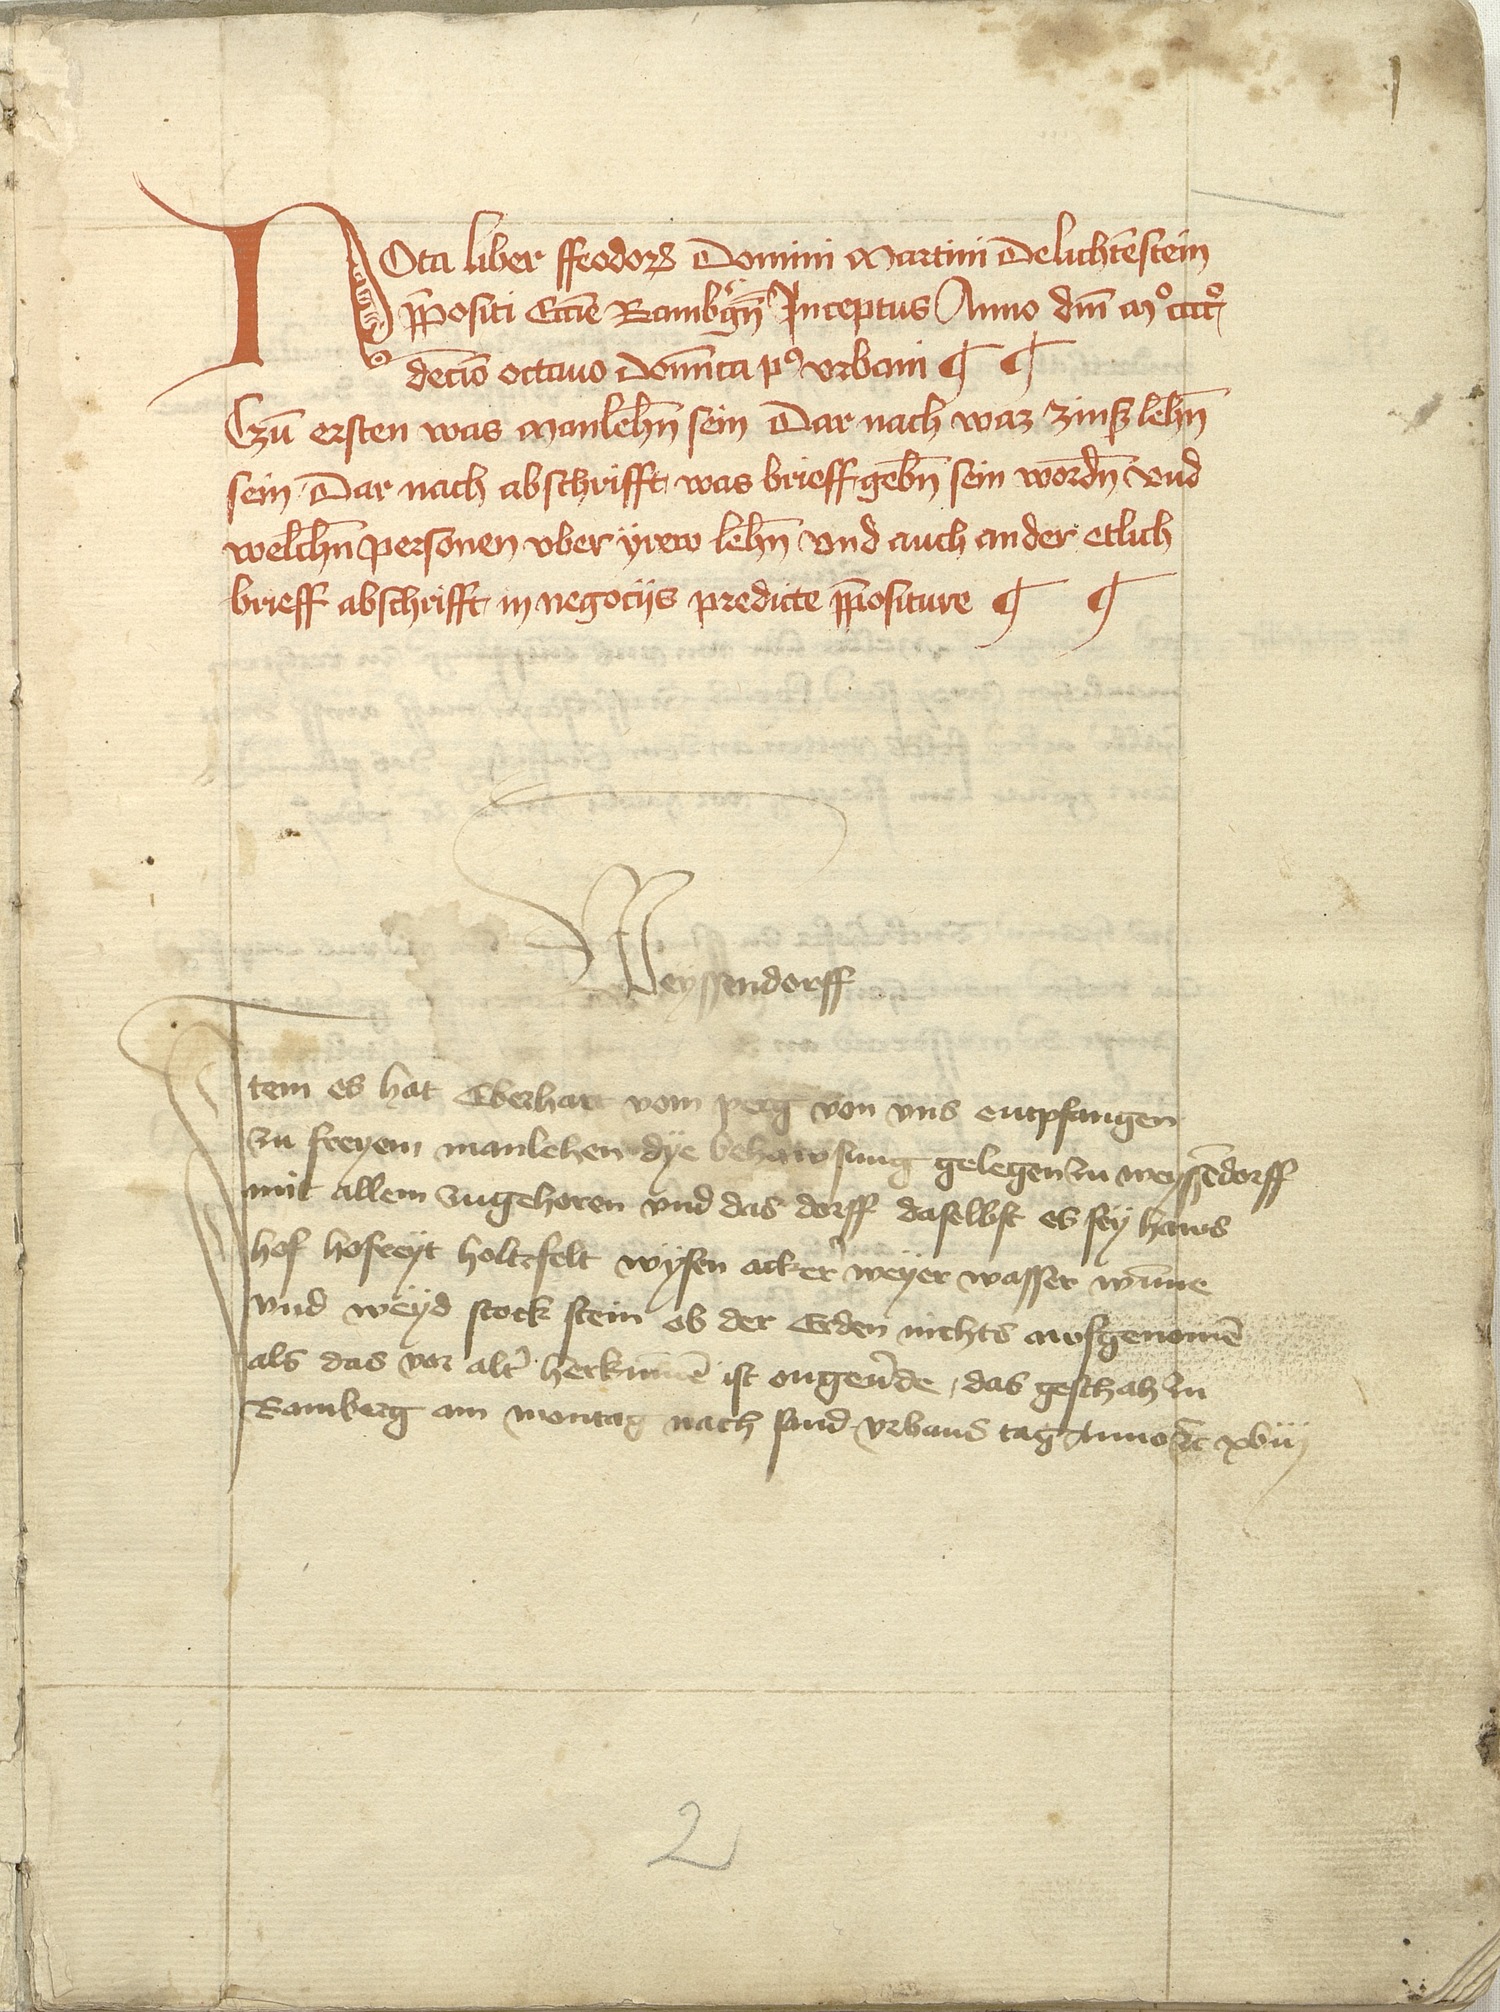 1
NOta liber ffeodorꝝ Domini Martini De lichtēstein
p̄positi Eccīe Bambg̃n̄ Inceptus Anno dm̄ mº cccc̊
decīo octauo Domīca pꝰ vrbani ¶ ¶
Czū ersten was manlehn̄ sein Dar nach waz zinß lehn̄
sein Dar nach abschrifft was brieff gebn̄ sein wordn̄ vnd
welchn̄ personen vber yrew lehn̄ vnd auch ander etlich
brieff abschrifft in negocijs predicte p̄positure ¶ ¶
Weyssendorff
Item es hat Eberhart vom perg von vns entpfangen
zu freyem manlehen dye behawsung gelegen zu weyssēdorff
mit allem zugehoren vnd das dorff daselbst es sey haws
hof hofreyt holtz felt wysen acker weyer wasser wūne
vnd weyd stock stein ob der Erden nichts awsgenomē
als das vor alt̉ herkūmē ist ongeủde, das geschah zu
Bamberg am montag nach sand vrbans tag Anno ꝛc xviij
2